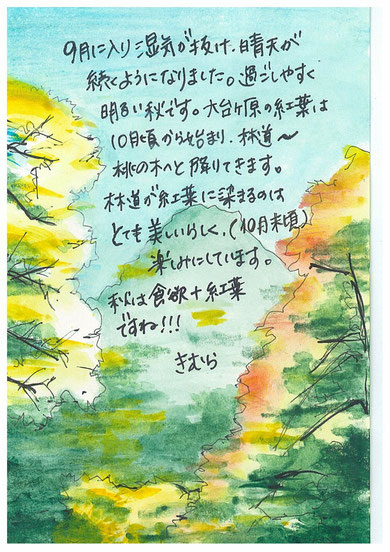 9月に入り湿気が抜け、晴天が
続くようになりました。過ごしやすく
明るい秋です。大台ヶ原の紅葉は
10月頃から始まり、林道〜
桃の木へと降りてきます。
林道が紅葉に染まるのは
とても美しいらしく、(10月末頃)
楽しみにしています。
秋は食欲+紅葉
ですね!!!
きむら